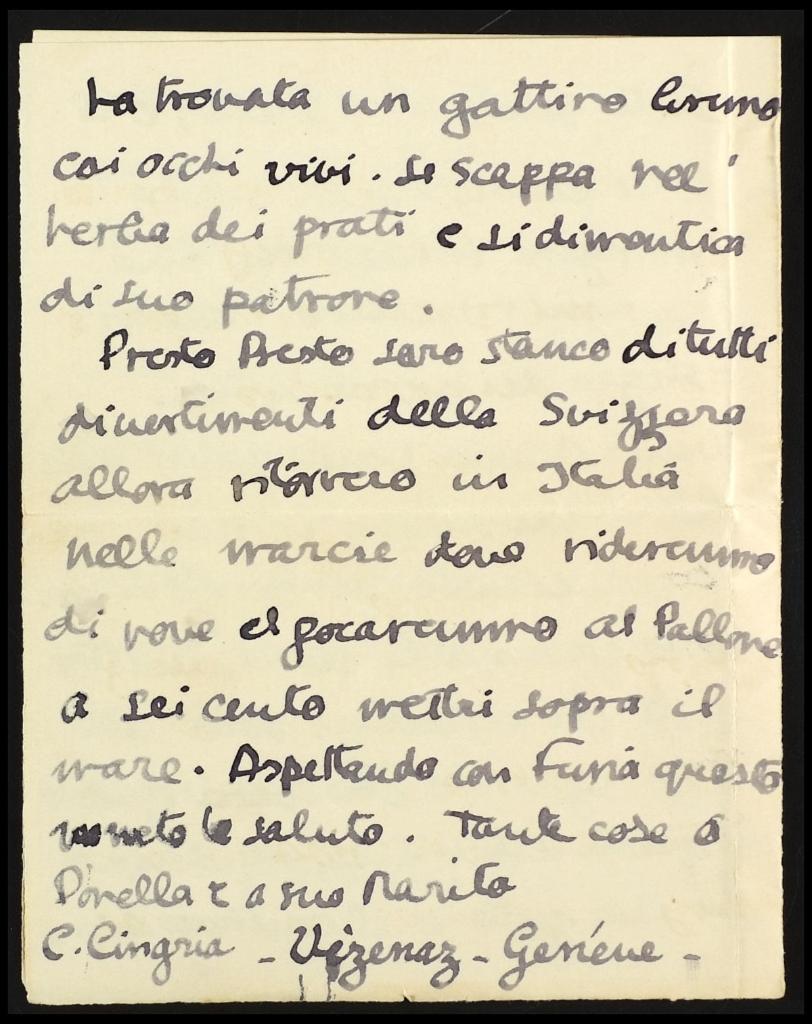 ha trovata un gattino bruno
coi occhi vivi. se scappa nell'
herba dei prati e si dimentica
di suo patrone.
Presto Presto saro stanco di tutti
divertimenti della Svizzera
allora ritornero in Italia
nelle marcie dove rideranno
di nove et gocaranno al Pallone
a sei cento metri sopra il
mare. Aspettando con furia questo
le saluto. Tante cose a
e a suo Marito
C. Cingria - Vézenaz - Genéve -